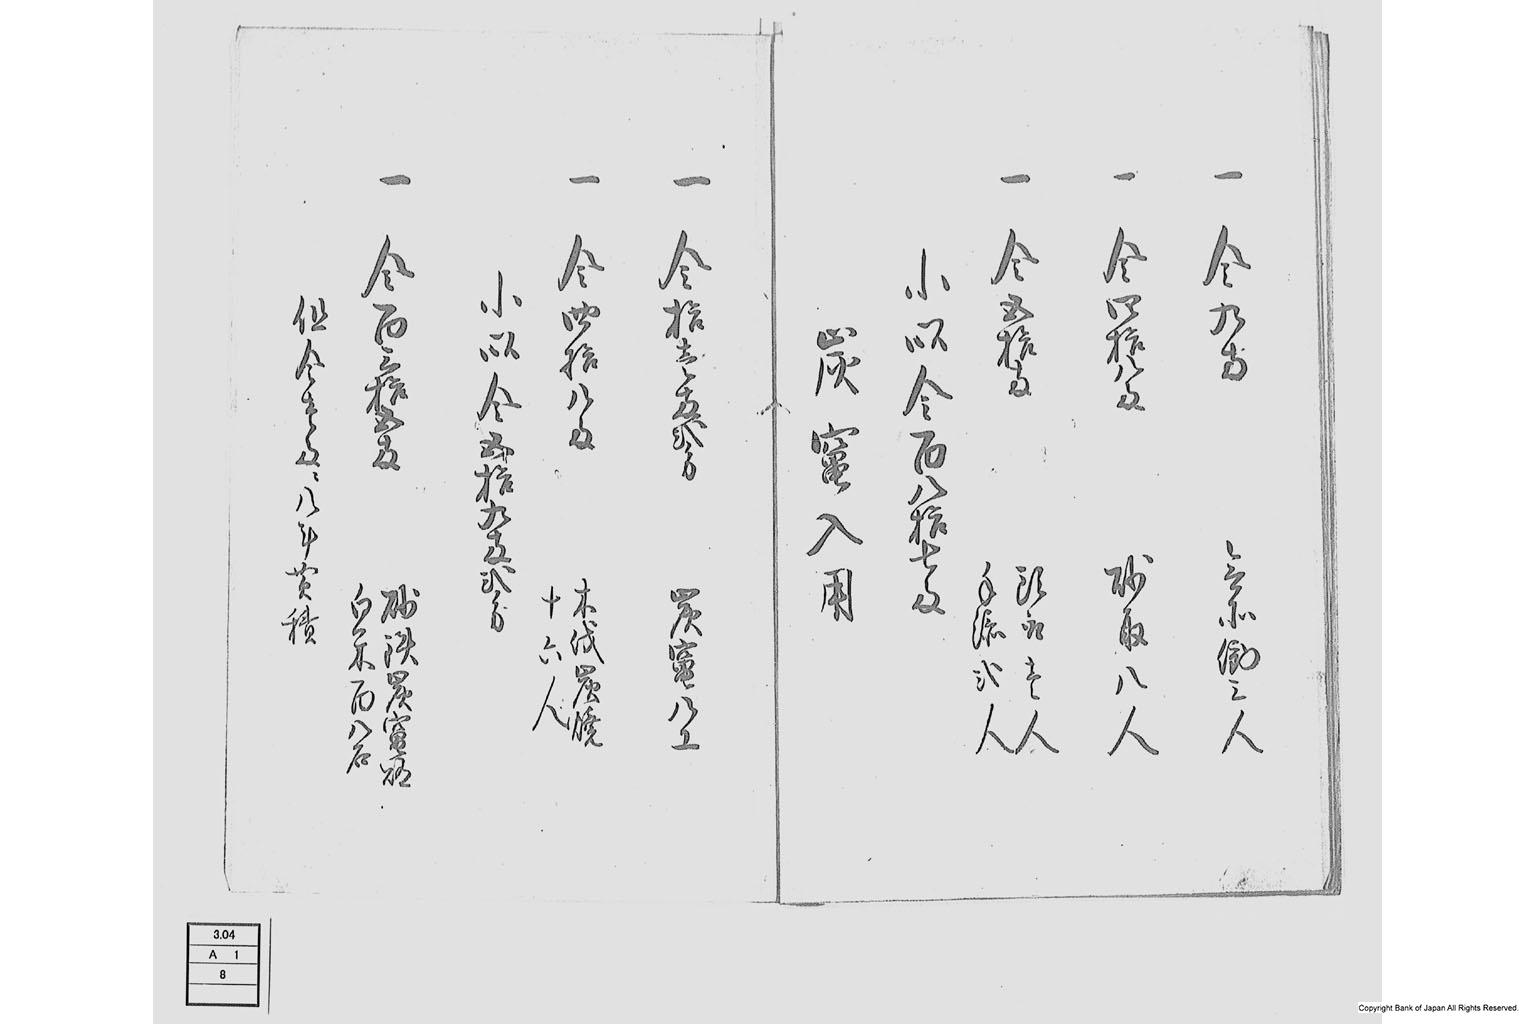 一 金九両
働三人
一 金四拾八両
砂取八人
一 金五拾両
壱人
手漉弐人
小以金百八拾七両
炭竈入用
一 金拾壱両弐分
炭竈八工
一 金四拾八両
木伐炭焼
十六人
小以金五拾九両弐分
一 金百三拾五両
砂鉄炭竈
白米百八石
但金壱両ニ八斗買積
3.04
A 1
8
Copyright Bank of Japan All Rights Reserved.